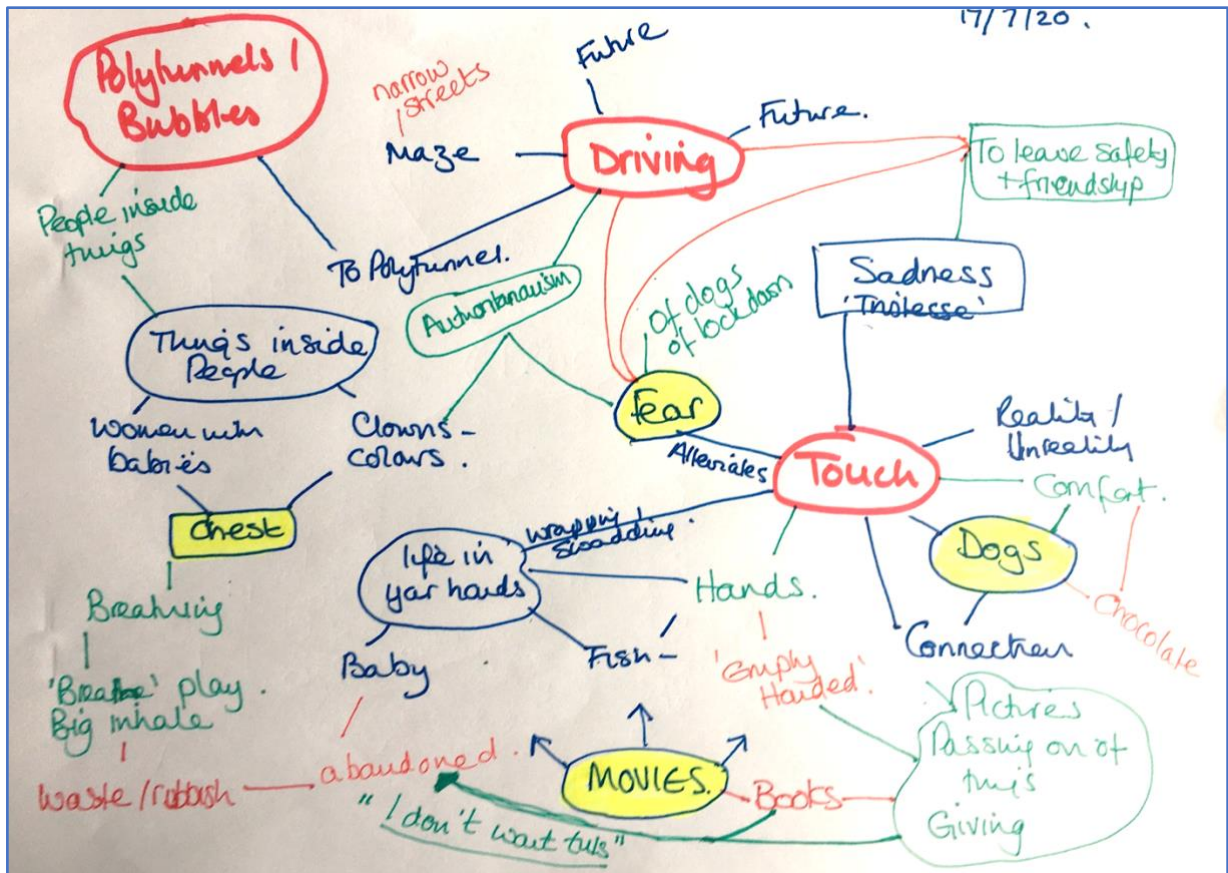 17/7/20.
Polytunnels /
Bubbles
Future
narrow
streets
Maze
Driving
Future.
To leave safety
+ friendship
People inside
things
To Polytunnel.
Authoritarianism
Sadness
'Tristesse'
Of dogs
of lockdown
Things inside
People
Fear
Women with
babies
Clowns -
colours.
Alleviates
Touch
Reality /
Unreality
Comfort.
Chest
wrapping /
swaddling.
Dogs
life in
your hands
Breathing
Hands.
Chocolate
Baby
Fish -
Connection
'Breathe' play.
Big inhale
'Empty
Handed'.
Pictures
Passing on of
things
Giving
Waste / rubbish
abandoned.
MOVIES.
Books
"I don't want this"